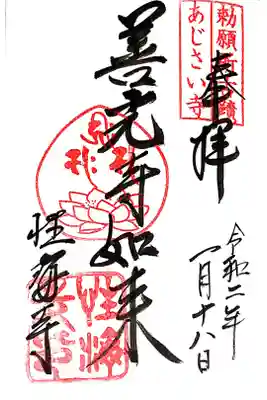 あじさい寺
奉拝
善光寺如来
性海寺
令和二年
一月十八日